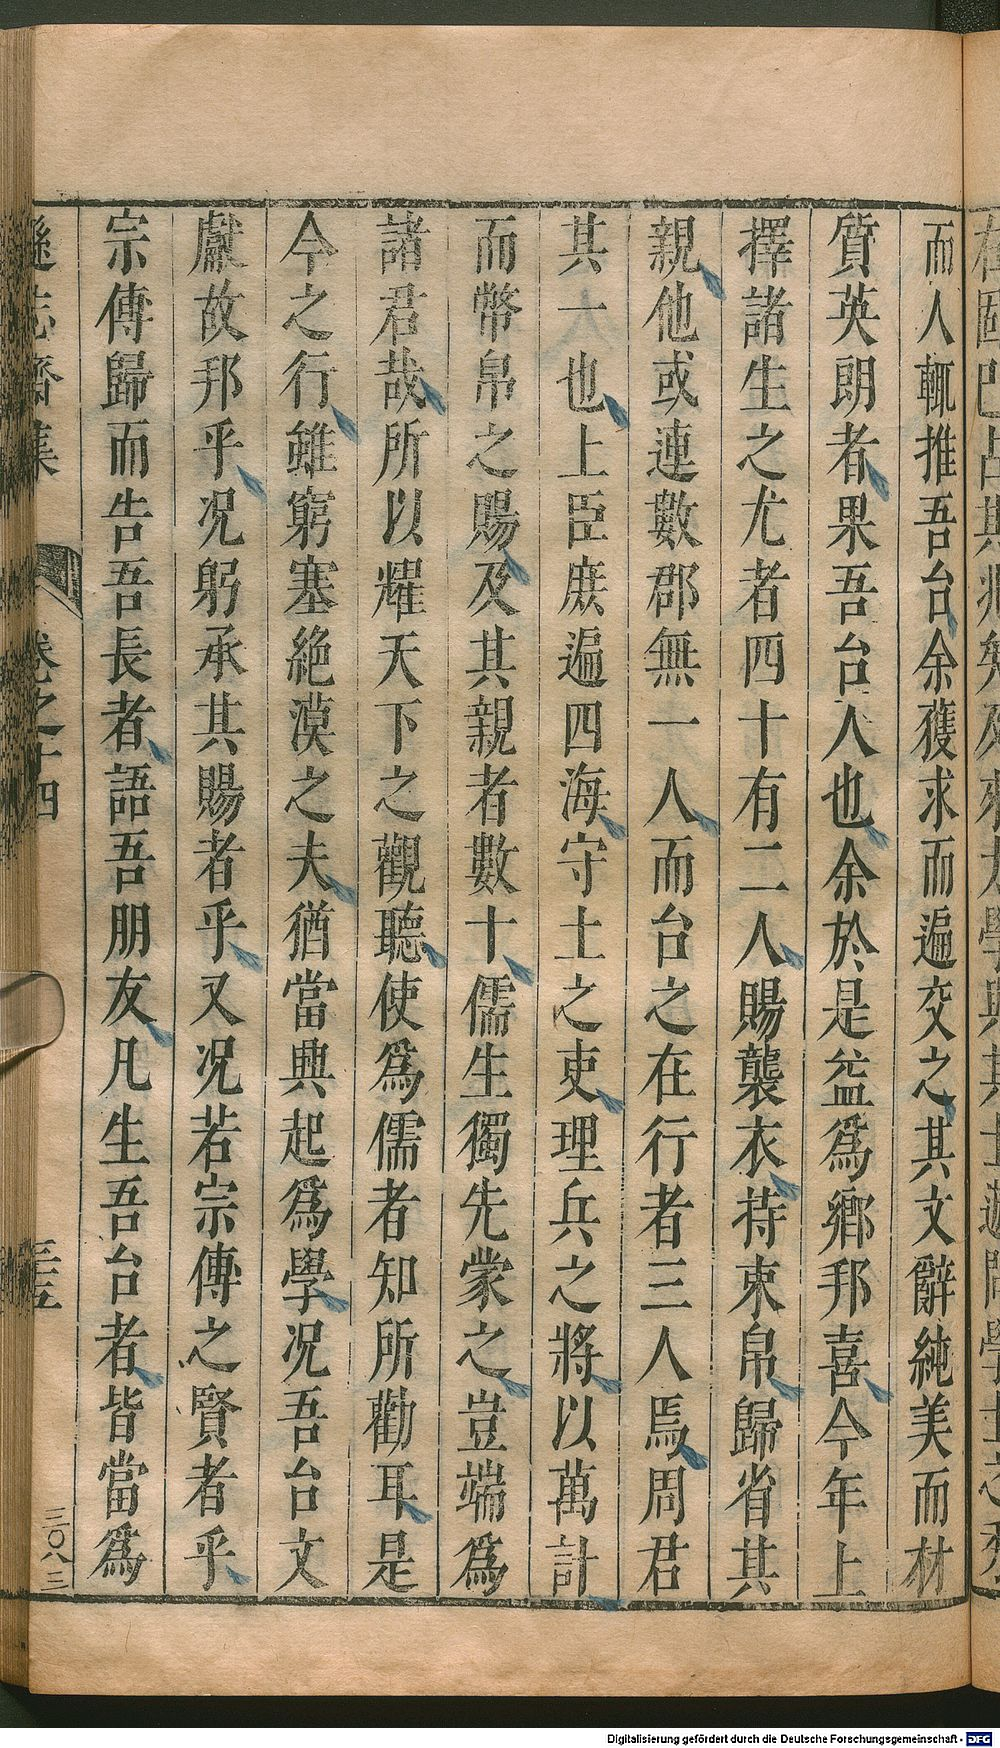 而人輒推吾台余獲求而遍交之其文辭純美而材
質英朗者果吾台人也余於是益爲鄉邦喜今年上
擇諸生之尤者四十有二人賜襲衣持束帛歸省其
親他或連數郡無一人而台之在行者三人焉周君
其一也上臣庶遍四海守土之吏理兵之將以萬計
而幣帛之賜及其親者數十儒生獨先蒙之豈端爲
諸君哉所以耀天下之觀聽使爲儒者知所勸耳是
今之行雖窮塞絶漠之夫猶當興起爲學况吾台文
獻故邦乎况躬承其賜者乎又况若宗傳之賢者乎
宗傳歸而告吾長者語吾朋友凡生吾台者皆當爲
遜志齋集 卷之十四 三五 三〇八三
Digitalisierung gefördert durch die Deutsche Forschungsgemeinschaft - DFG